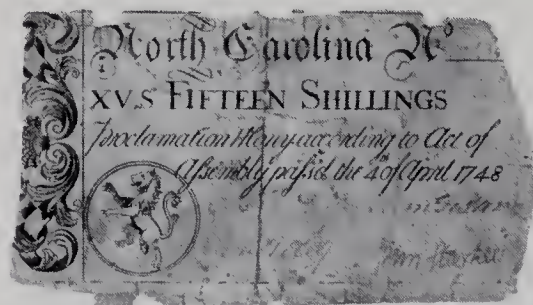 North Carolina No
XV.S FIFTEEN SHILLINGS
Proclamation Money according to Act of
Assembly passed the 4th of April 1748